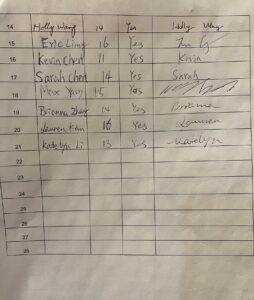 14 Holly Wang 14 Yes Holly Wang
15 Eric Ling 16 Yes
16 Kevin Chen 11 Yes Kevin
17 Sarah Chen 14 Yes Sarah
18 15 Yes
19 Brianna Zhang 14 Yes Brianna
20 Lauren Kan 16 Yes Lauren
21 Katelyn Li 13 Yes Katelyn
22
23
24
25
26
27
28